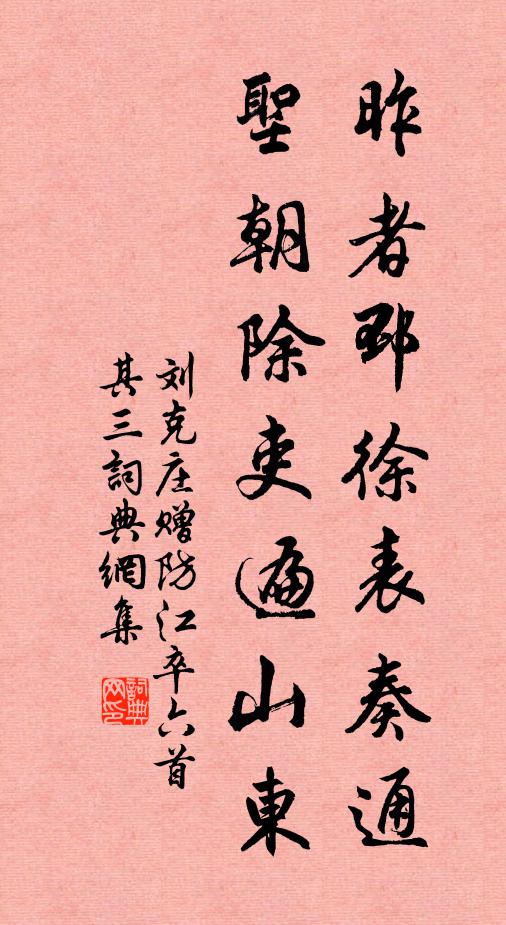 昨者郅徐表奏通
聖朝除吏遍山東
刘克庄赠防江卒六首
其三詞典網集
詞典
网印